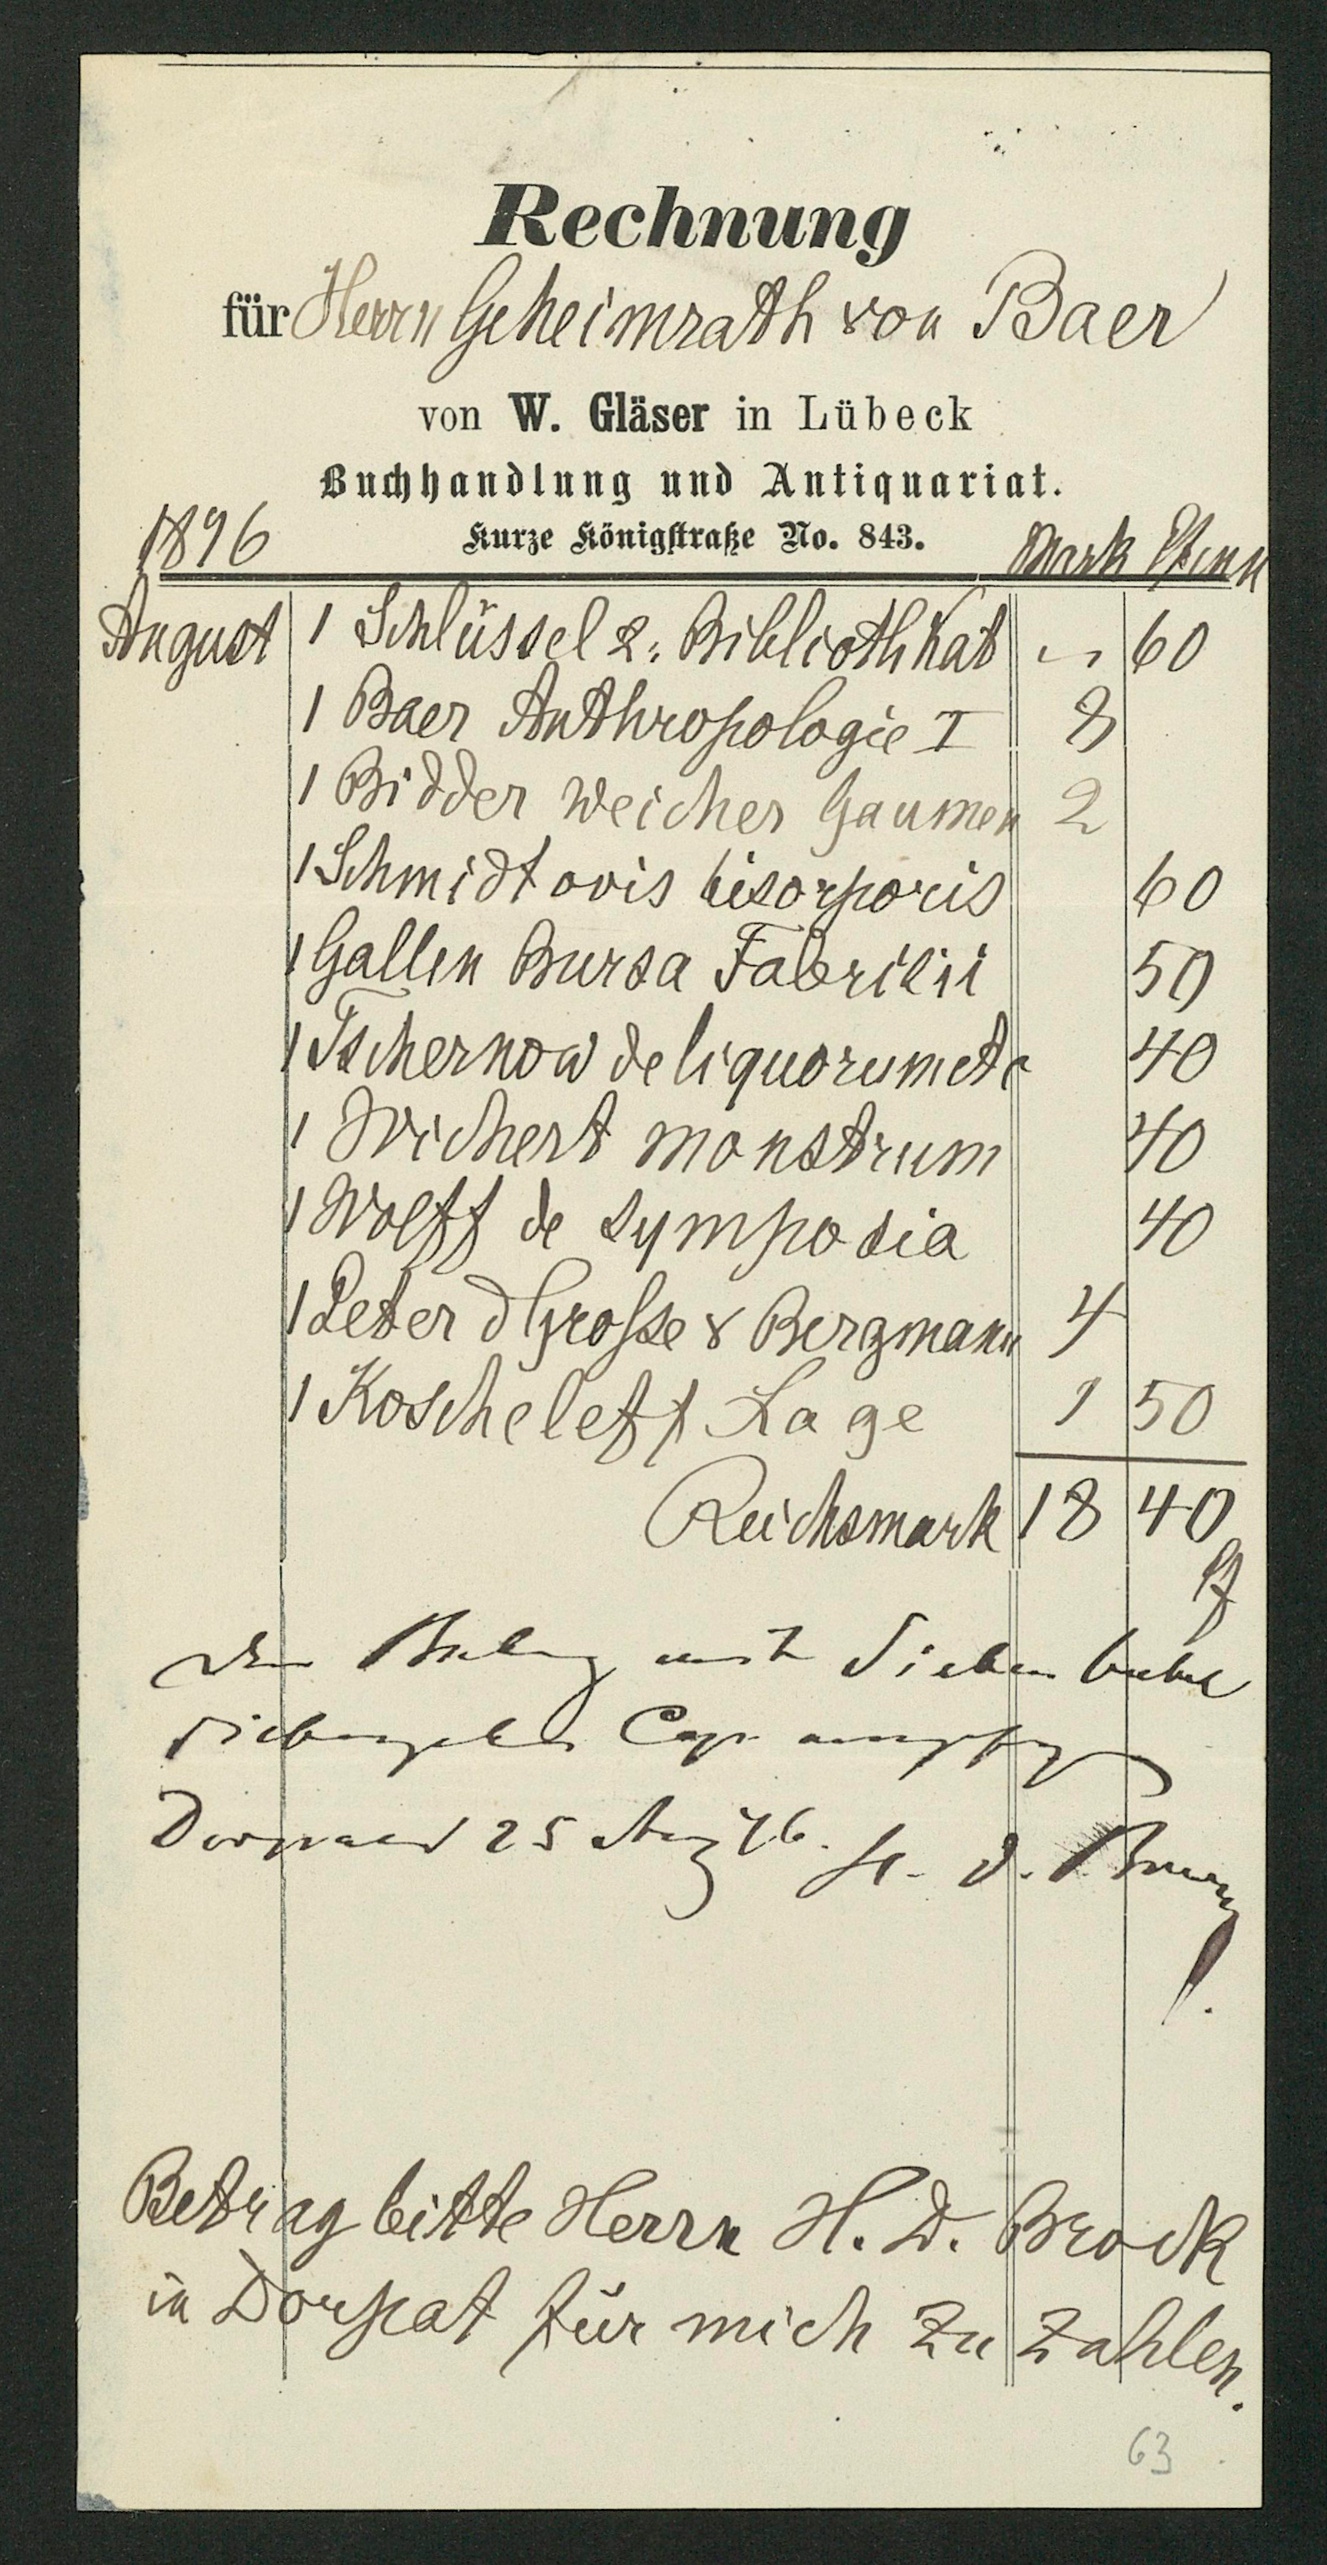 Rechnung
für Herrn Geheimrath von Baer
von W. Gläser in Lübeck
Buchhandlung und Antiquariat.
Kurze Königstraße No. 843.
1896 Mark Pfenn
August 1 Schlüssel z. Biblioth Kat " 60
1 Baer Anthropologie I 8
1 Bidder weicher Gaumen 2
1 Schmidt ovis bicorporis 60
1 Gallen Bursa Fabricii 50
1 Tschernow de liquorum etc 40
1 Wichert monstrum 40
1 Wolff de symposia 40
1 Peter d Große v Bergmann 4
1 Koscheleff Lage 1 50
Reichsmark 18 40
Pf
Den Betrag mit Sieben Rubel
siebenzehn Cop. empfangen
Dorpat 25 Aug 76. H. D. Brock
Betrag bitte Herrn H. D. Brock
in Dorpat für mich zu zahlen.
63